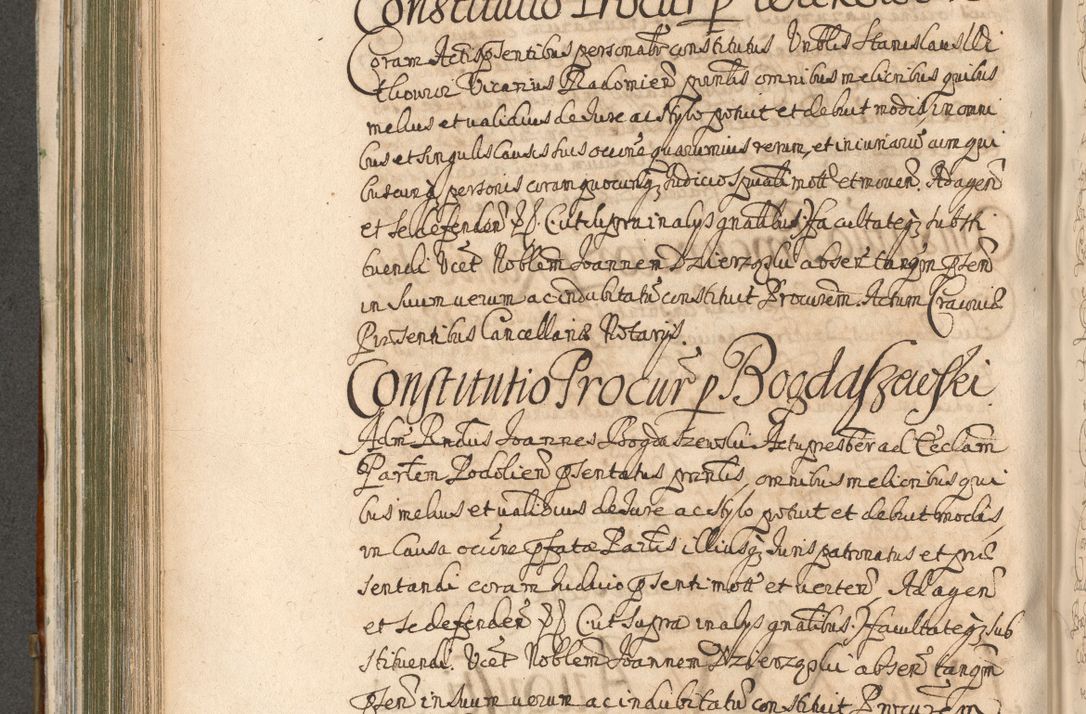 Constitutio Procur p
Coram Actis pſentibus personalr constitutus Vnblis Stanislaus
Vicarius Radomien pnntis omnibus melioribus quibus
melius et validius de Iure ac stylo potuit et debuit modis in omni
bus et singulis causis suis occōne quarumuis rerum, et iniuriarū cum qui
buscunqȝ personis coram quocunqȝ Iudicio spuali mott et mouen. Ad agen
et se defenden pp. (ut supra in alys gnalibus) facultateqȝ substi
tuendi Vcet Noblem Ioannem Dzierzgski absen tanqm pſen
in suum verum ac indubitatū constituit Procurem. Actum Cracouiæ
Præsentibus Cancellariæ Notarys.
Constitutio Procur p Bogdaszewski
Adm Rndus Ioannes Bogdaszewski Actu presber ad Eccliam
Parlem Podolien pſentatus pnntis, omnibus melioribus qui
bus melius et validius de Iure ac stylo potuit et debuit modis,
in causa occōne pfatæ Parlis illiusqȝ Iuris patronatus et præ
sentandi coram Iudicio pſenti mott et verten, Ad agen
et se defenden pp (ut supra in alys gnalibus) facultateqȝ sub
stituendi. Vcet Noblem Ioannem Dzierzgski absen tanqm
pſen in suum verum ac indubitatū constituit Procurem